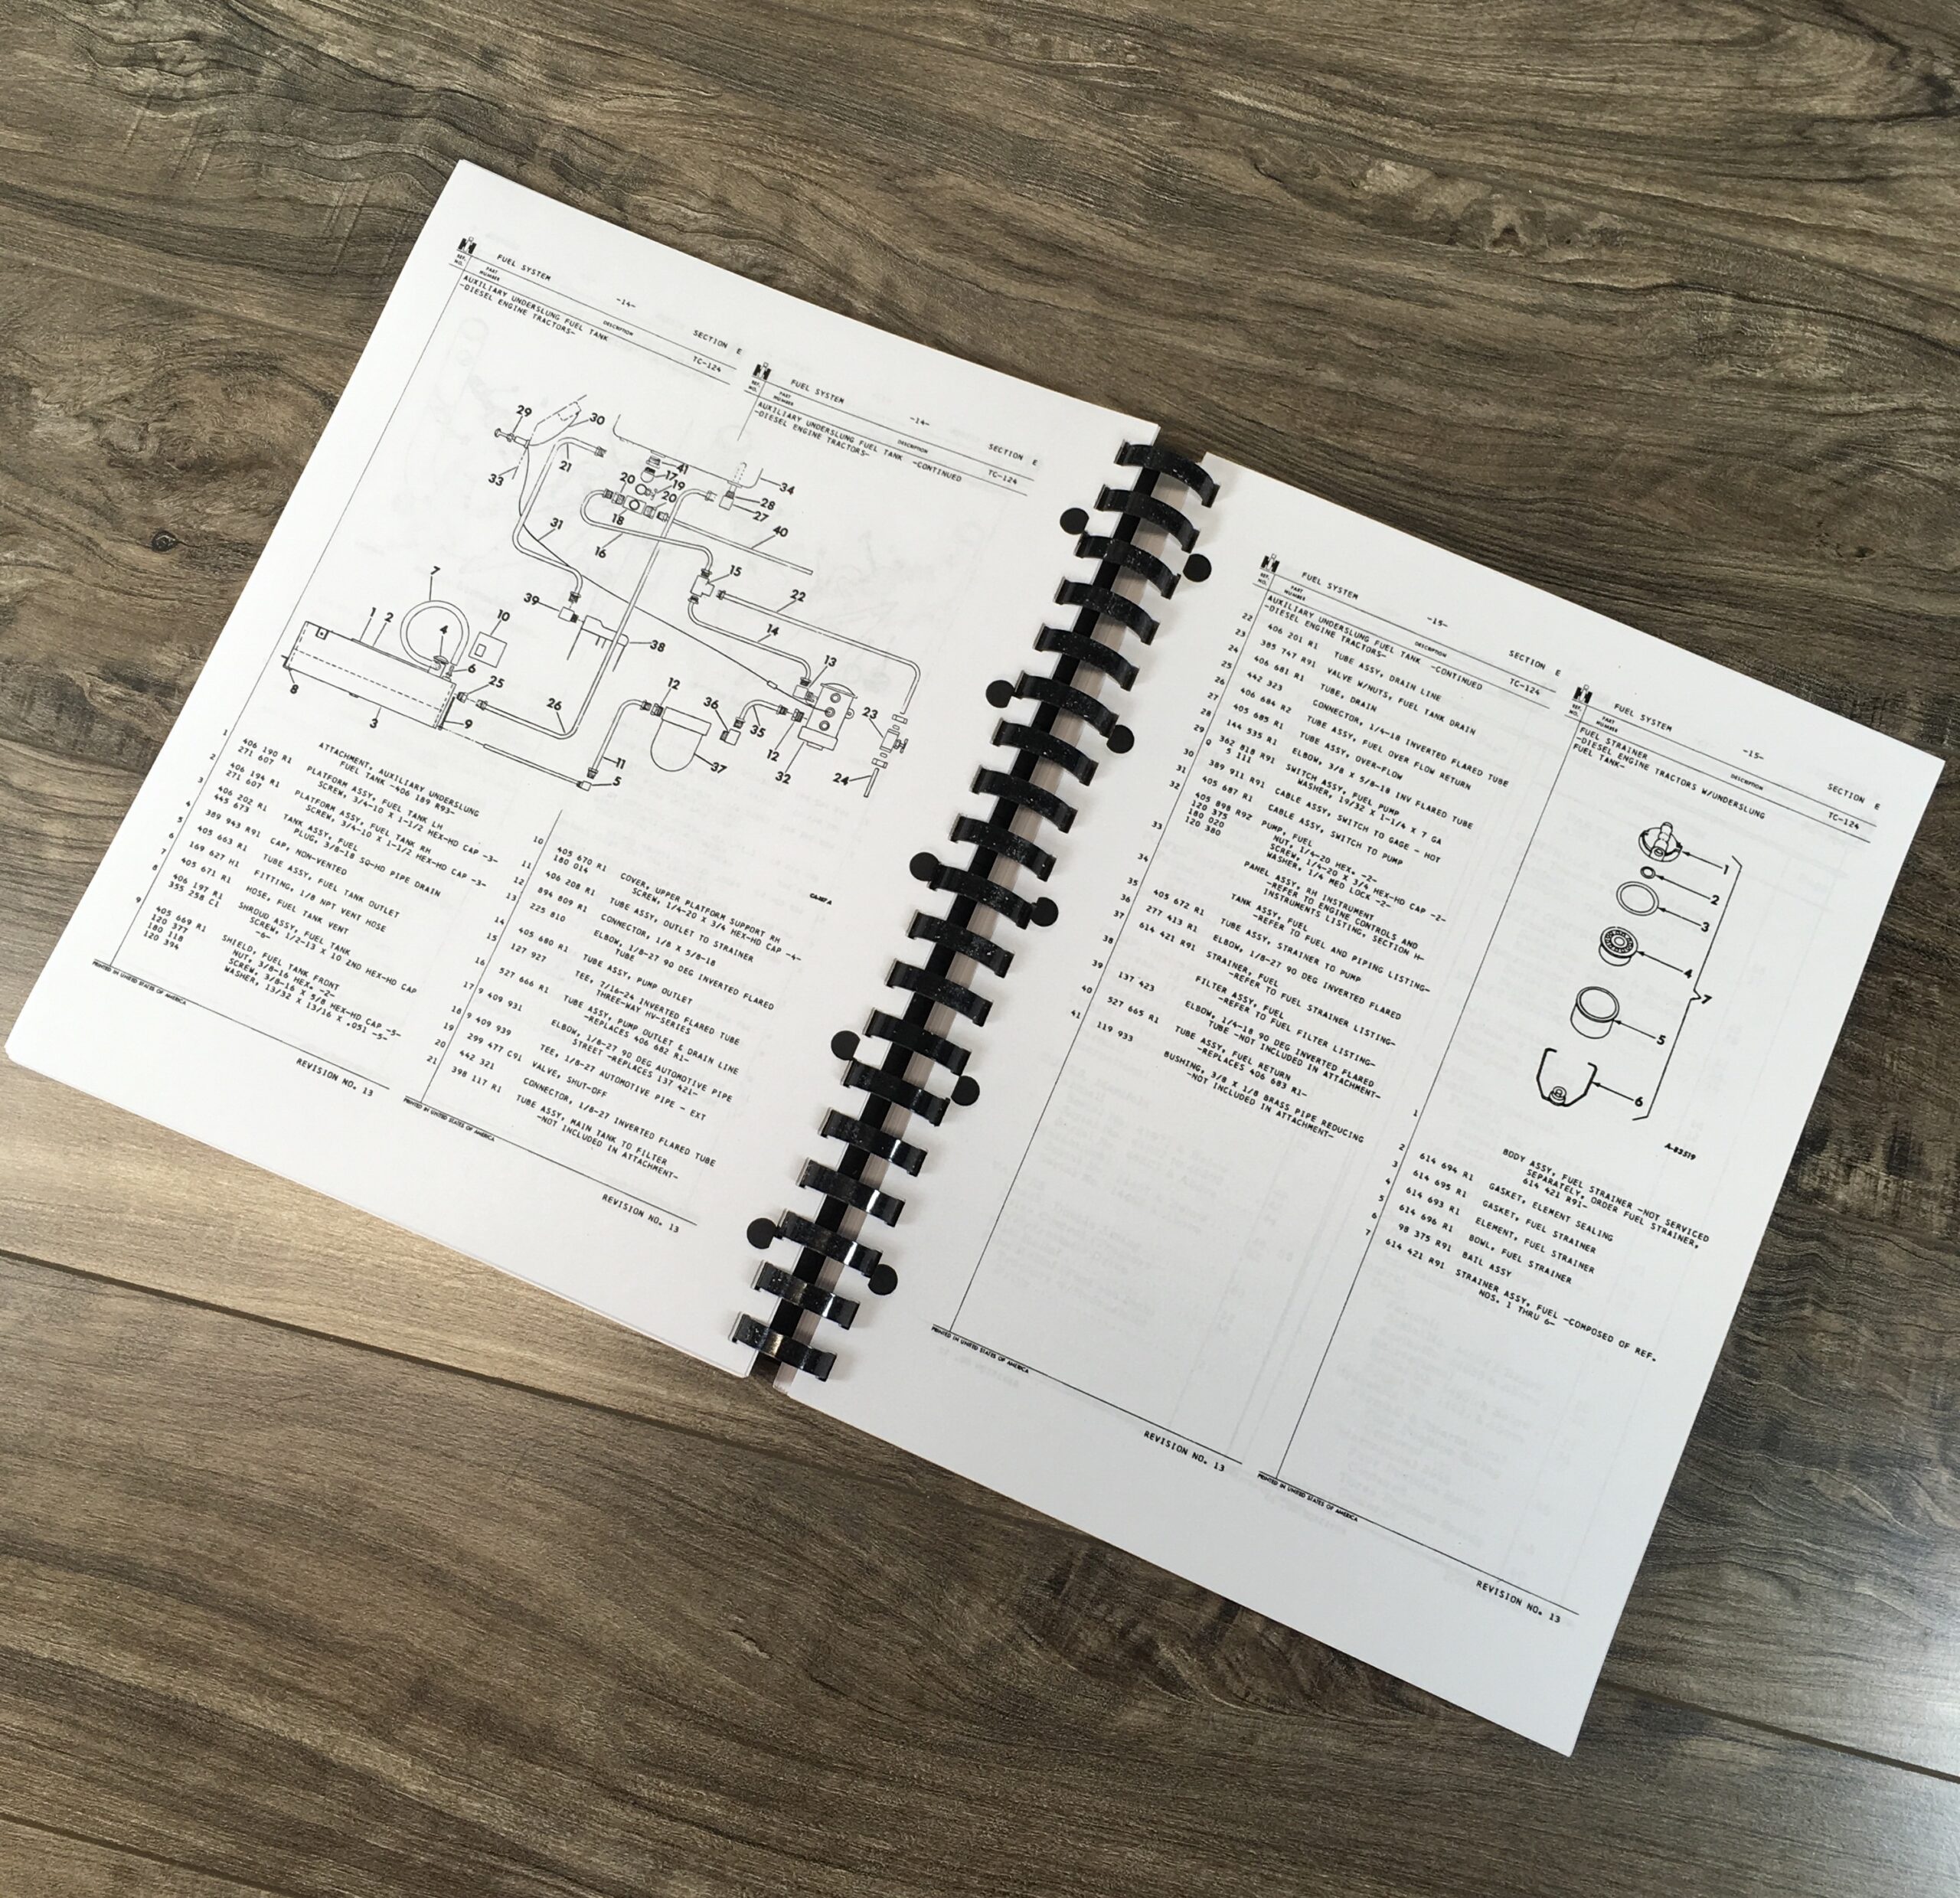 FUEL SYSTEM
-14-
SECTION E
REF. NO.
PART NUMBER
DESCRIPTION
TC-124
AUXILIARY UNDERSLUNG FUEL TANK
-DIESEL ENGINE TRACTORS-
29
30
21
33
41
17
19
20
20
18
34
28
27
40
31
16
15
22
39
14
38
7
1
2
4
10
6
25
8
3
9
26
12
13
36
35
12
32
23
24
11
37
5
1
ATTACHMENT, AUXILIARY UNDERSLUNG
FUEL TANK -406 189 R93-
406 190 R1 PLATFORM ASSY, FUEL TANK LH
271 607 SCREW, 3/4-10 X 1-1/2 HEX-HD CAP -3-
2 406 194 R1 PLATFORM ASSY, FUEL TANK RH
271 607 SCREW, 3/4-10 X 1-1/2 HEX-HD CAP -3-
3 406 202 R1 TANK ASSY, FUEL
445 673 PLUG, 3/8-18 SQ-HD PIPE DRAIN
4 389 943 R91 CAP, NON-VENTED
5 405 663 R1 TUBE ASSY, FUEL TANK OUTLET
6 169 627 H1 FITTING, 1/8 NPT VENT HOSE
7 405 671 R1 HOSE, FUEL TANK VENT
8 406 197 R1 SHROUD ASSY, FUEL TANK
355 258 C1 SCREW, 1/2-13 X 10 2ND HEX-HD CAP
-6-
9 405 669 R1 SHIELD, FUEL TANK FRONT
120 377 NUT, 3/8-16 HEX. -2-
180 118 SCREW, 3/8-16 X 5/8 HEX-HD CAP -5-
120 394 WASHER, 13/32 X 13/16 X .051 -5-
PRINTED IN UNITED STATES OF AMERICA
REVISION NO. 13
FUEL SYSTEM
-14-
SECTION E
REF. NO.
PART NUMBER
DESCRIPTION
TC-124
AUXILIARY UNDERSLUNG FUEL TANK -CONTINUED
-DIESEL ENGINE TRACTORS-
10 405 670 R1 COVER, UPPER PLATFORM SUPPORT RH
180 014 SCREW, 1/4-20 X 3/4 HEX-HD CAP -4-
11 406 208 R1 TUBE ASSY, OUTLET TO STRAINER
12 894 809 R1 CONNECTOR, 1/8 X 5/8-18
13 225 810 ELBOW, 1/8-27 90 DEG INVERTED FLARED
TUBE
14 405 680 R1 TUBE ASSY, PUMP OUTLET
15 127 927 TEE, 7/16-24 INVERTED FLARED TUBE
THREE-WAY HV-SERIES
16 527 666 R1 TUBE ASSY, PUMP OUTLET & DRAIN LINE
-REPLACES 406 682 R1-
17 9 409 931 ELBOW, 1/8-27 90 DEG AUTOMOTIVE PIPE
STREET -REPLACES 137 421-
18 9 409 939 TEE, 1/8-27 AUTOMOTIVE PIPE - EXT
19 299 477 C91 VALVE, SHUT-OFF
20 442 321 CONNECTOR, 1/8-27 INVERTED FLARED TUBE
21 398 117 R1 TUBE ASSY, MAIN TANK TO FILTER
-NOT INCLUDED IN ATTACHMENT-
PRINTED IN UNITED STATES OF AMERICA
REVISION NO. 13
FUEL SYSTEM
-15-
SECTION E
REF. NO.
PART NUMBER
DESCRIPTION
TC-124
AUXILIARY UNDERSLUNG FUEL TANK -CONTINUED
-DIESEL ENGINE TRACTORS-
22 406 201 R1 TUBE ASSY, DRAIN LINE
23 385 747 R91 VALVE W/NUTS, FUEL TANK DRAIN
24 406 681 R1 TUBE, DRAIN
25 442 323 CONNECTOR, 1/4-18 INVERTED FLARED TUBE
26 406 684 R2 TUBE ASSY, FUEL OVER FLOW RETURN
27 405 685 R1 TUBE ASSY, OVER-FLOW
28 144 535 R1 ELBOW, 3/8 X 5/8-18 INV FLARED TUBE
29 362 818 R91 SWITCH ASSY, FUEL PUMP
Q 5 111 WASHER, 19/32 X 1-1/4 X 7 GA
30 389 911 R91 CABLE ASSY, SWITCH TO GAGE - HOT
31 405 687 R1 CABLE ASSY, SWITCH TO PUMP
32 405 898 R92 PUMP, FUEL
120 375 NUT, 1/4-20 HEX. -2-
180 020 SCREW, 1/4-20 X 3/4 HEX-HD CAP -2-
120 380 WASHER, 1/4 MED LOCK -2-
33 PANEL ASSY, RH INSTRUMENT
-REFER TO ENGINE CONTROLS AND
INSTRUMENTS LISTING, SECTION H-
34 TANK ASSY, FUEL
-REFER TO FUEL AND PIPING LISTING-
35 405 672 R1 TUBE ASSY, STRAINER TO PUMP
36 277 413 R1 ELBOW, 1/8-27 90 DEG INVERTED FLARED
37 614 421 R91 STRAINER, FUEL
-REFER TO FUEL STRAINER LISTING-
38 FILTER ASSY, FUEL
-REFER TO FUEL FILTER LISTING-
39 137 423 ELBOW, 1/4-18 90 DEG INVERTED FLARED
TUBE -NOT INCLUDED IN ATTACHMENT-
40 527 665 R1 TUBE ASSY, FUEL RETURN
-REPLACES 406 683 R1-
41 119 933 BUSHING, 3/8 X 1/8 BRASS PIPE REDUCING
-NOT INCLUDED IN ATTACHMENT-
PRINTED IN UNITED STATES OF AMERICA
REVISION NO. 13
FUEL SYSTEM
-15-
SECTION E
REF. NO.
PART NUMBER
DESCRIPTION
TC-124
FUEL STRAINER
-DIESEL ENGINE TRACTORS W/UNDERSLUNG
FUEL TANK-
1
2
3
4
7
5
6
A-83519
1 BODY ASSY, FUEL STRAINER -NOT SERVICED
SEPARATELY, ORDER FUEL STRAINER,
614 421 R91-
2 614 694 R1 GASKET, ELEMENT SEALING
3 614 695 R1 GASKET, FUEL STRAINER
4 614 693 R1 ELEMENT, FUEL STRAINER
5 614 696 R1 BOWL, FUEL STRAINER
6 98 375 R91 BAIL ASSY
7 614 421 R91 STRAINER ASSY, FUEL -COMPOSED OF REF.
NOS. 1 THRU 6-
PRINTED IN UNITED STATES OF AMERICA
REVISION NO. 13